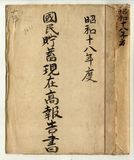 昭和十八年度
國民貯蓄現在高報告書
昭和十八年